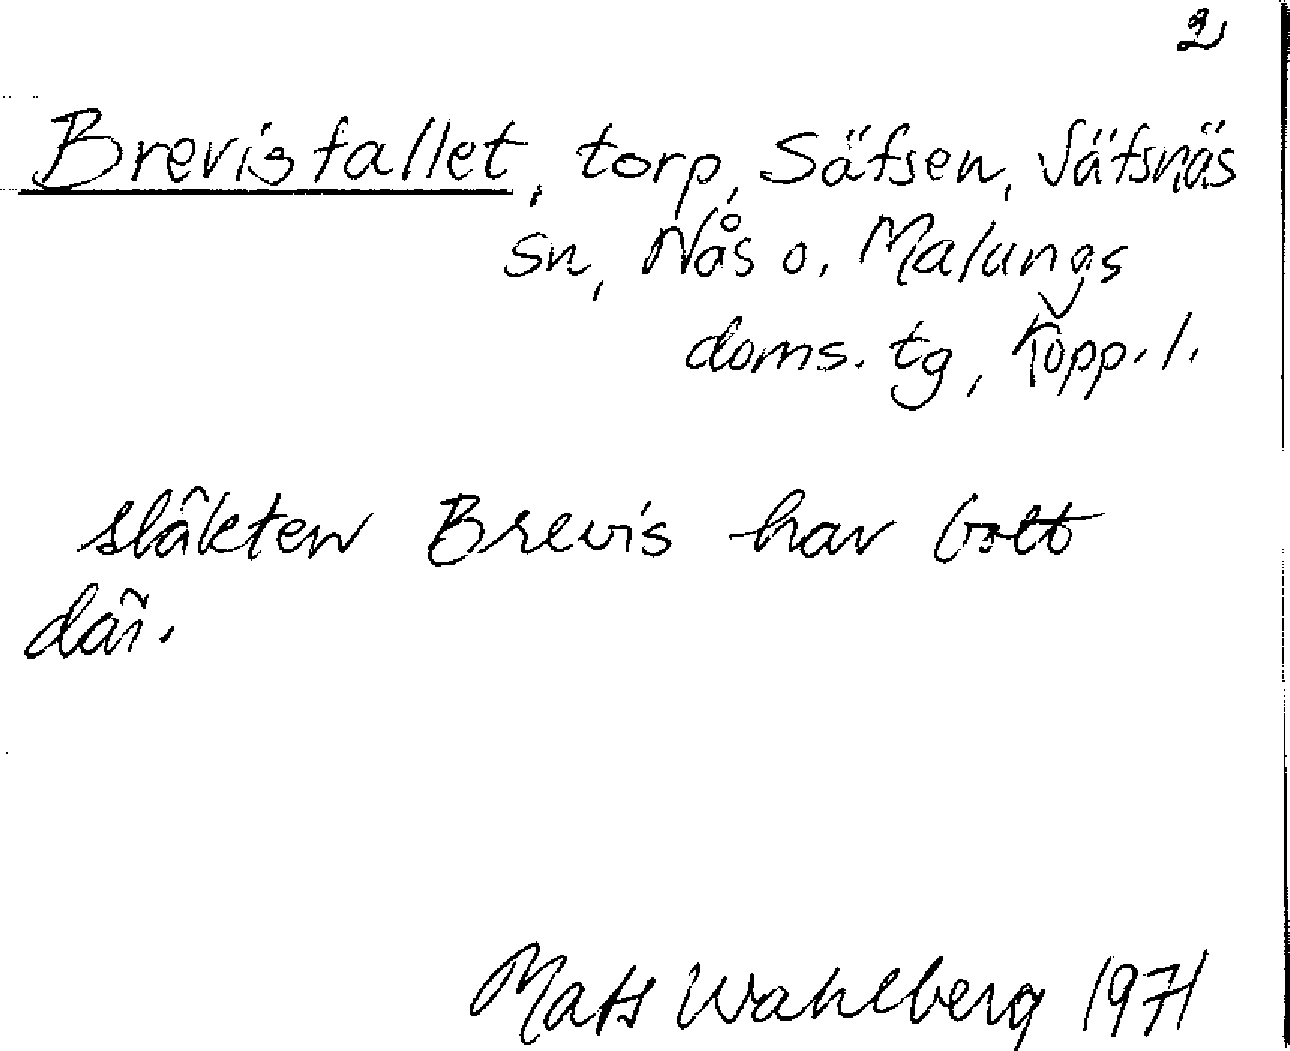 2
Brevisfallet, torp, Säfsen, Säfsnäs
sn, Nås o. Malungs
doms. tg, Kopp. l.
släkten Brevis har bott
där.
Mats Wahlberg 1971